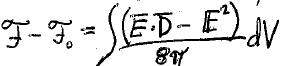 ℱ - ℱ₀ = ∫ (E·D - E²) / 8π dV